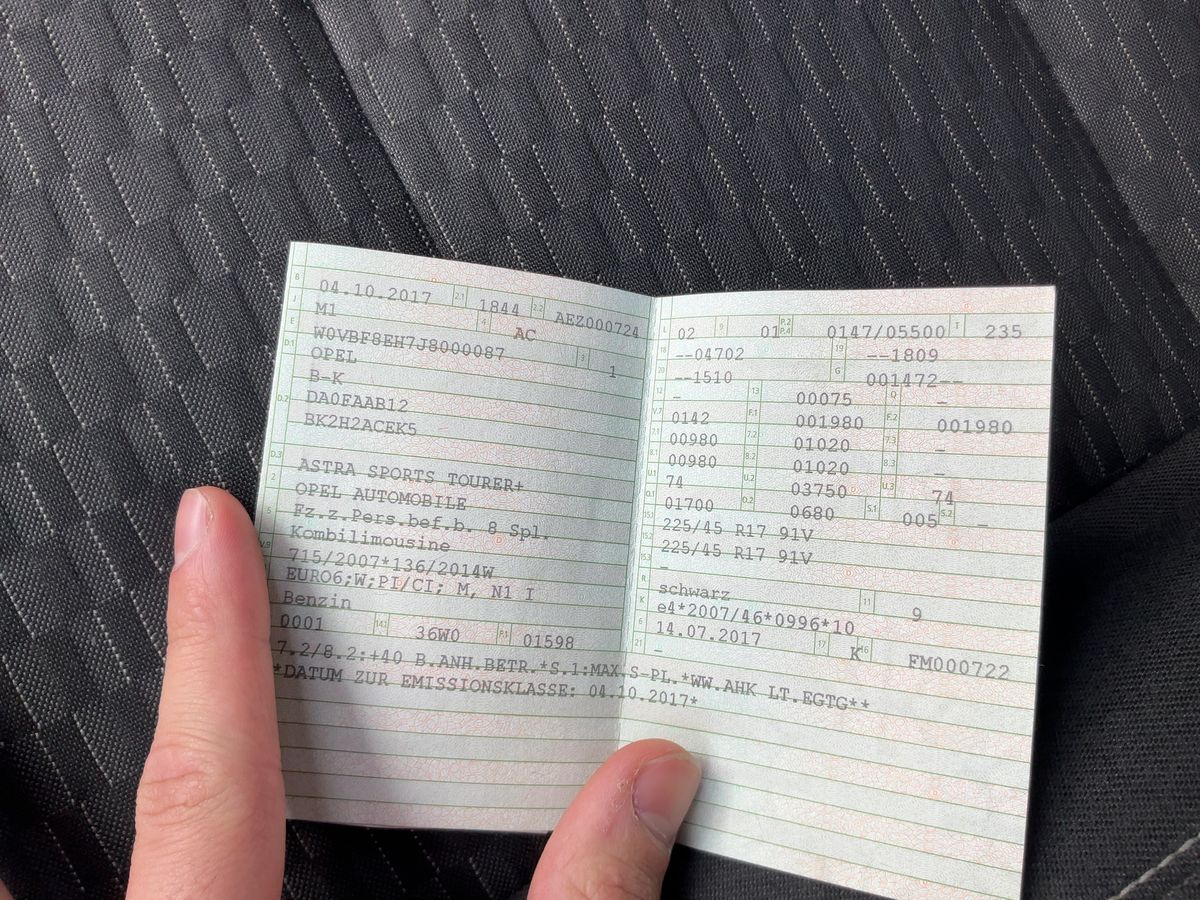 B 04.10.2017 2.1 1844 2.2 AEZ000724
J M1 4 AC
E W0VBF8EH7J8000087 3 1
D.1 OPEL
B-K
D.2 DA0FAAB12
BK2H2ACEK5
D.3 ASTRA SPORTS TOURER+
2 OPEL AUTOMOBILE
5 Fz.z.Pers.bef.b. 8 Spl.
Kombilimousine
V.9 715/2007*136/2014W
EURO6;W;PI/CI; M, N1 I
Benzin
0001 14.1 36W0 P.1 01598
L 02 9 01 P.2 P.4 0147/05500 T 235
18 --04702 19 --1809
20 --1510 G 001472--
12 - 13 00075 Q -
V.7 0142 F.1 001980 F.2 001980
7.1 00980 7.2 01020 7.3 -
8.1 00980 8.2 01020 8.3 -
U.1 74 U.2 03750 U.3 74
O.1 01700 O.2 0680 S.1 005 S.2 -
15.1 225/45 R17 91V
15.2 225/45 R17 91V
15.3 -
R schwarz 11 9
K e4*2007/46*0996*10
6 14.07.2017 17 K 16 FM000722
21 -
7.2/8.2:+40 B.ANH.BETR.*S.1:MAX S-PL.*WW.AHK LT.EGTG**
*DATUM ZUR EMISSIONSKLASSE: 04.10.2017*